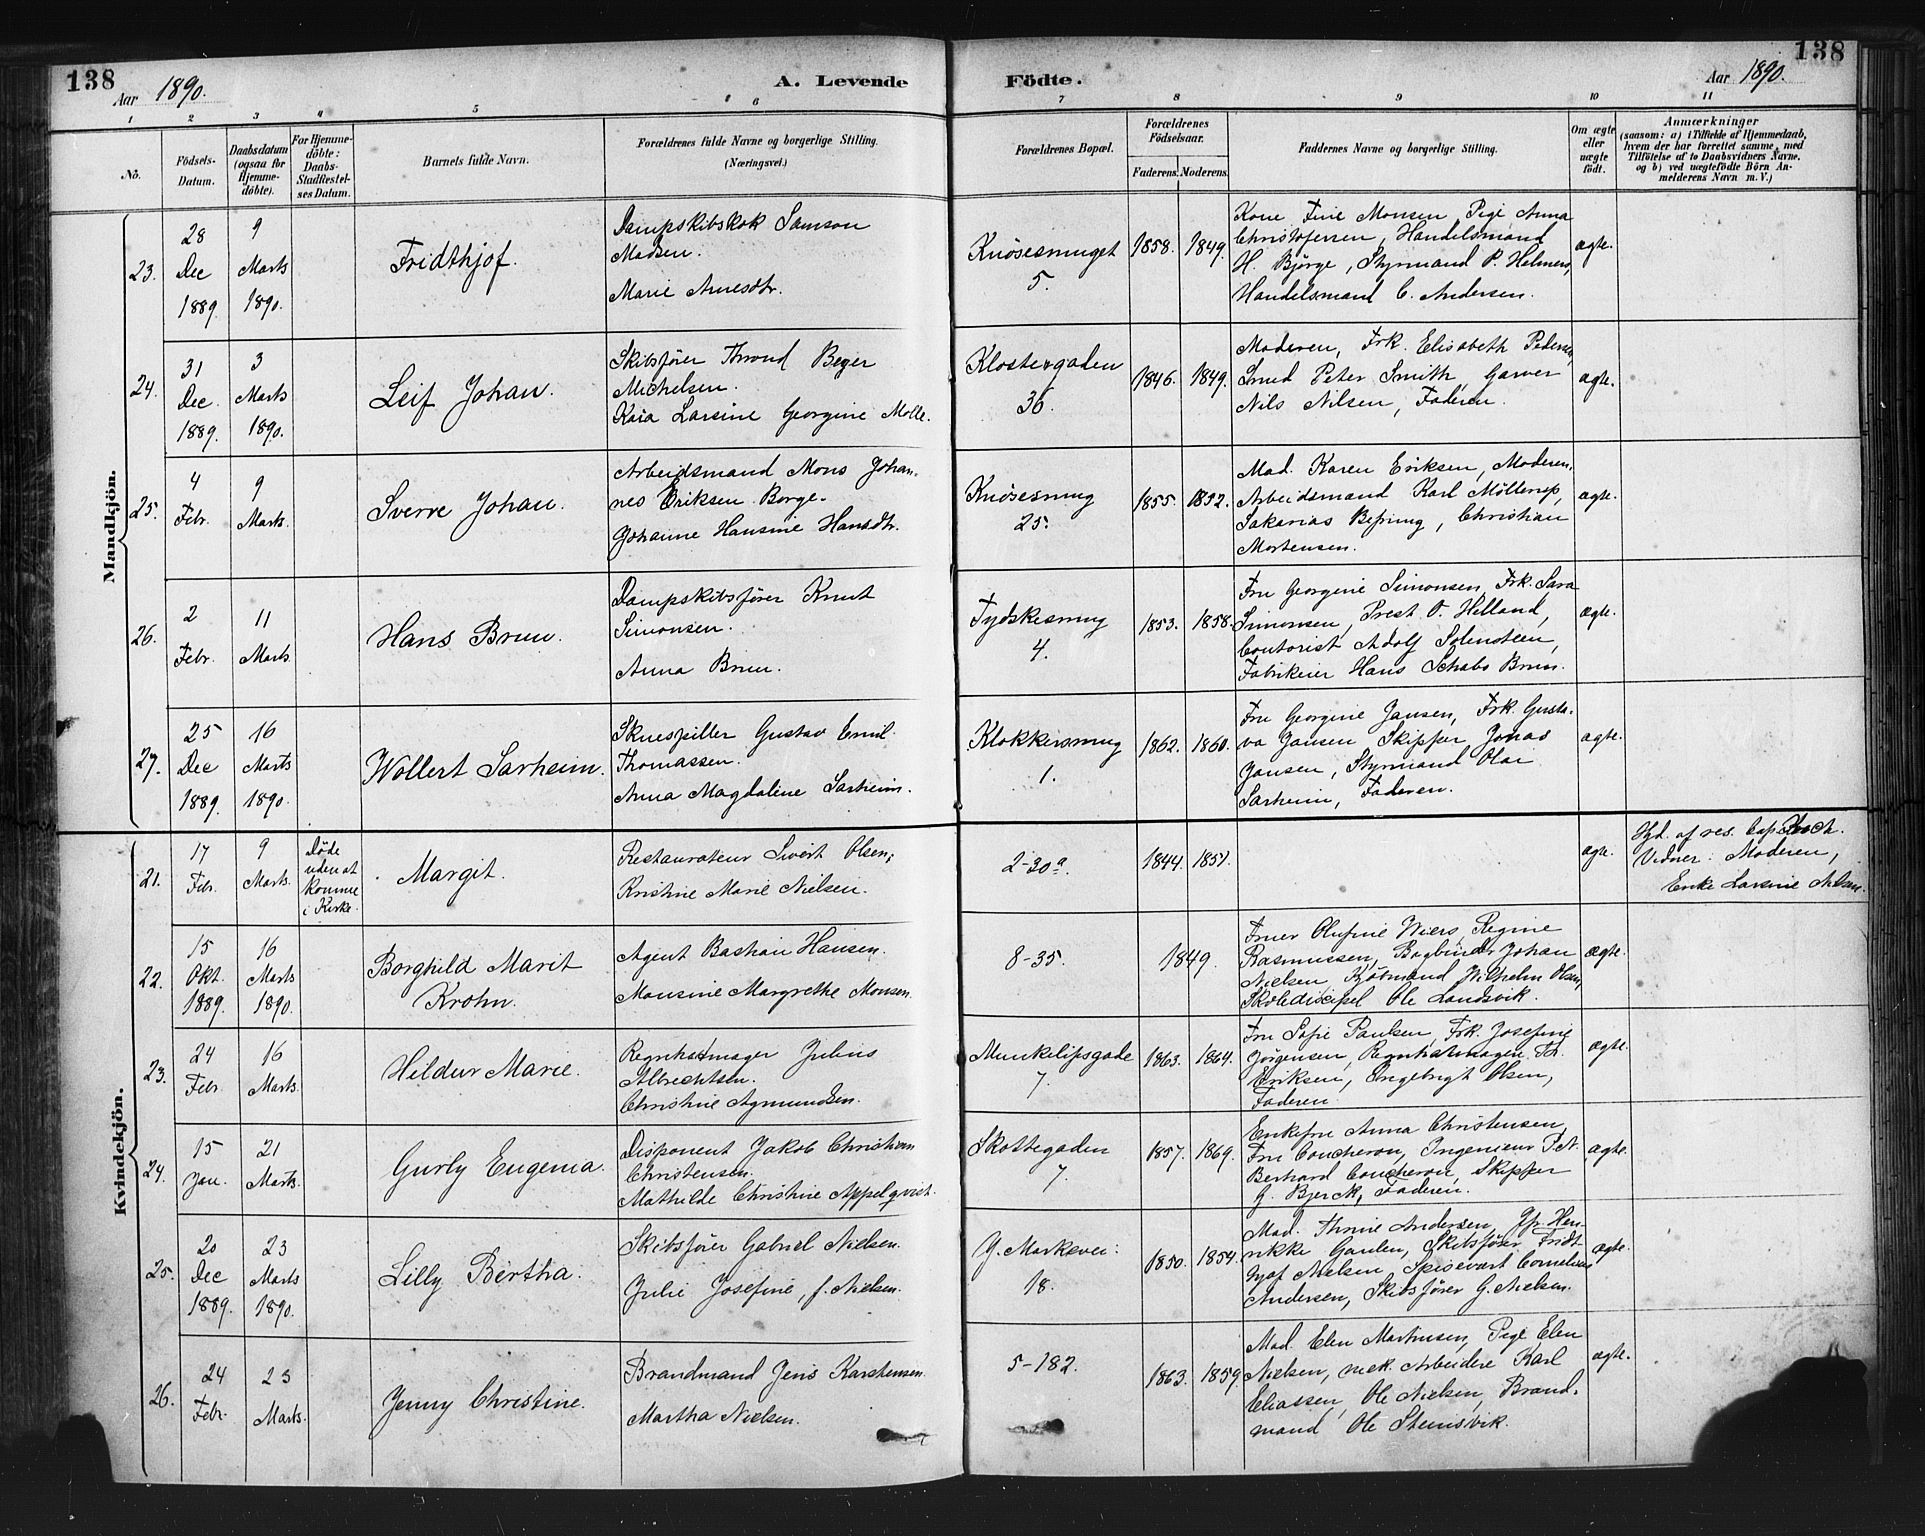 138
Aar 1890.
A. Levende
Födte.
Aar 1890.
138
1 2 3 4 5 6 7 8 9 10 11
No.
Födsels-
Datum.
Daabsdatum
(ogsaa for
Hjemme-
döbte).
For Hjemme-
döbte:
Daabs-
Stadfæstel-
ses Datum.
Barnets fulde Navn.
Forældrenes fulde Navne og borgerlige Stilling.
(Næringsvei.)
Forældrenes Bopæl.
Forældrenes
Födselsaar.
Faderens. Moderens.
Faddernes Navne og borgerlige Stilling.
Om ægte
eller
uægte
født.
Anmærkninger
(saasom: a) i Tilfælde af Hjemmedaab,
hvem der har forrettet samme, med
Tilföielse af to Daabsvidners Navne,
og b) ved uægtefödte Börn An-
melderens Navn m. V.)
Mandkjön.
23.
28
Dec
1889.
9
Marts
1890.
Fridthjof.
Dampskibskok Samson
Madsen.
Marie Arnesdtr.
Knösesmuget
5.
1858. 1849.
Kone Fine Monsen, Pige Anna
Christofersen, Handelsmand
H. Björge, Styrmand P. Helmers,
Handelsmand C. Andersen.
ægte.
24.
31
Dec.
1889.
3
Marts
1890.
Leif Johan.
Skibsfører Thrond Beyer
Michelsen.
Kaia Larsine Georgine Molle.
Klostergaden
36.
1846. 1849.
Moderen, Frk. Elisabeth Pedersen,
Smed Peter Smith, Garver
Nils Nilsen, Faderen.
ægte.
25.
4
Febr.
9
Marts.
Sverre Johan.
Arbeidsmand Mons Johan-
nes Eriksen Borge.
Johanne Hansine Hansdtr.
Knösesmug
25.
1855. 1852.
Mad. Karen Eriksen, Moderen,
Arbeidsmand Karl Möllerop,
Sakarias Befring, Christian
Mortensen.
ægte.
26.
2
Febr.
11
Marts.
Hans Brun.
Dampskibsfører Knut
Simonsen.
Anna Brun.
Tydskesmug
4.
1853. 1858.
Fru Georgine Simonsen, Frk. Sara
Simonsen, Prest O. Helland,
Contorist Adolf Solensteen,
Fabrikeier Hans Schabo Brun.
ægte.
27.
25
Dec
1889.
16
Marts
1890.
Wollert Sarheim.
Skuespiller Gustav Emil
Thomassen.
Anna Magdaline Sarheim.
Klokkersmug
1.
1862. 1860.
Fru Georgine Jansen, Frk. Gusta-
va Jansen, Skipper Jonas
Jansen, Styrmand Olai
Sarheim, Faderen.
ægte.
Kvindekjön.
21.
17
Febr.
9
Marts.
Døde
uden at
komme
i Kirke.
Margit.
Restauratør Sivert Olsen,
Kristine Marie Nielsen.
2-30a.
1844. 1851.
ægte.
Hjd. af res. Cap. Koch.
Vidner: Moderen,
Enke Larsine
22.
15
Okt.
1889.
16
Marts
1890.
Borghild Marit
Krohn.
Agent Bastian Hansen.
Monsine Margrethe Monsen.
8-35.
1849.
Fruer Olufine Wiers, Regine
Rasmussen, Bogbinder Johan
Nielsen, Kjöbmand Wilhelm Olsen,
Skoledisipel Ole Landsvik.
ægte.
23.
24
Febr.
16
Marts.
Hildur Marie.
Regnhatmager Julius
Albrechtsen.
Christine Agmundsen.
Munkelipsgade
7.
1863. 1864.
Fru Sofie Paulsen, Frk. Josefine
Jørgensen, Regnhatmager Th.
Eriksen, Engebrigt Olsen,
Faderen.
ægte.
24.
15
Jan.
21
Marts.
Gurly Eugenia.
Disponent Jakob Christian
Christensen.
Mathilde Christine Appelqvist.
Skottegaden
7.
1857. 1869.
Enkefru Anna Christensen,
Fru Coucheron, Ingeniør P. N.
Berhard Coucheron, Skipper
G. Bjerck, Faderen.
ægte.
25.
20
Dec
1889.
23
Marts
1890.
Lilly Bertha.
Skibsfører Gabriel Nielsen.
Julie Josefine, f. Nielsen.
Y. Markevei
18.
1850. 1854.
Mad. Thrine Andersen, Hen-
rikke Gaulen, Skibsfører Fridt-
hjof Nielsen, Spisevært Cornelius
Andersen, Skibsfører G. Nielsen.
ægte.
26.
24
Febr.
23
Marts.
Jenny Christine.
Brandmand Jens Karstensen.
Martha Nielsen.
5-182.
1863. 1859.
Mad. Elen Martinsen, Pige Elen
Nielsen, mek. Arbeidere Karl
Eliassen, Ole Nielsen, Brand-
mand Ole Stemsvik.
ægte.